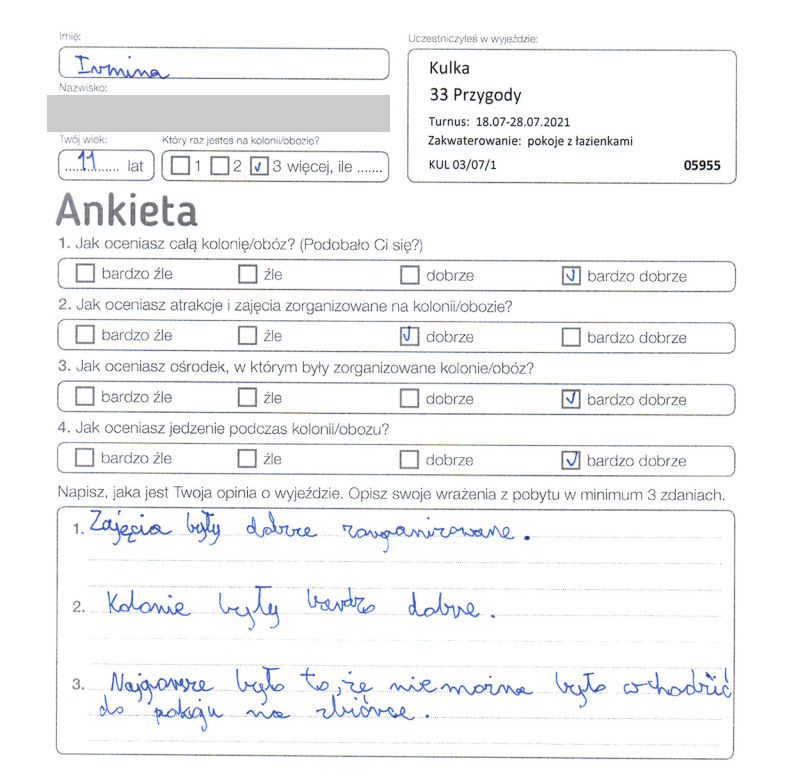 Imię:
Irmina
Nazwisko:
Twój wiek:
11 lat
Który raz jesteś na kolonii/obozie?
1 2 3 więcej, ile .......
Uczestniczyłeś w wyjeździe:
Kulka
33 Przygody
Turnus: 18.07-28.07.2021
Zakwaterowanie: pokoje z łazienkami
KUL 03/07/1 05955
Ankieta
1. Jak oceniasz całą kolonię/obóz? (Podobało Ci się?)
bardzo źle źle dobrze bardzo dobrze
2. Jak oceniasz atrakcje i zajęcia zorganizowane na kolonii/obozie?
bardzo źle źle dobrze bardzo dobrze
3. Jak oceniasz ośrodek, w którym były zorganizowane kolonie/obóz?
bardzo źle źle dobrze bardzo dobrze
4. Jak oceniasz jedzenie podczas kolonii/obozu?
bardzo źle źle dobrze bardzo dobrze
Napisz, jaka jest Twoja opinia o wyjeździe. Opisz swoje wrażenia z pobytu w minimum 3 zdaniach.
1. Zajęcia były dobrze zorganizowane.
2. Kolonie były bardzo dobre.
3. Najgorsze było to, że nie można było wchodzić
do pokoju na zbiórce.